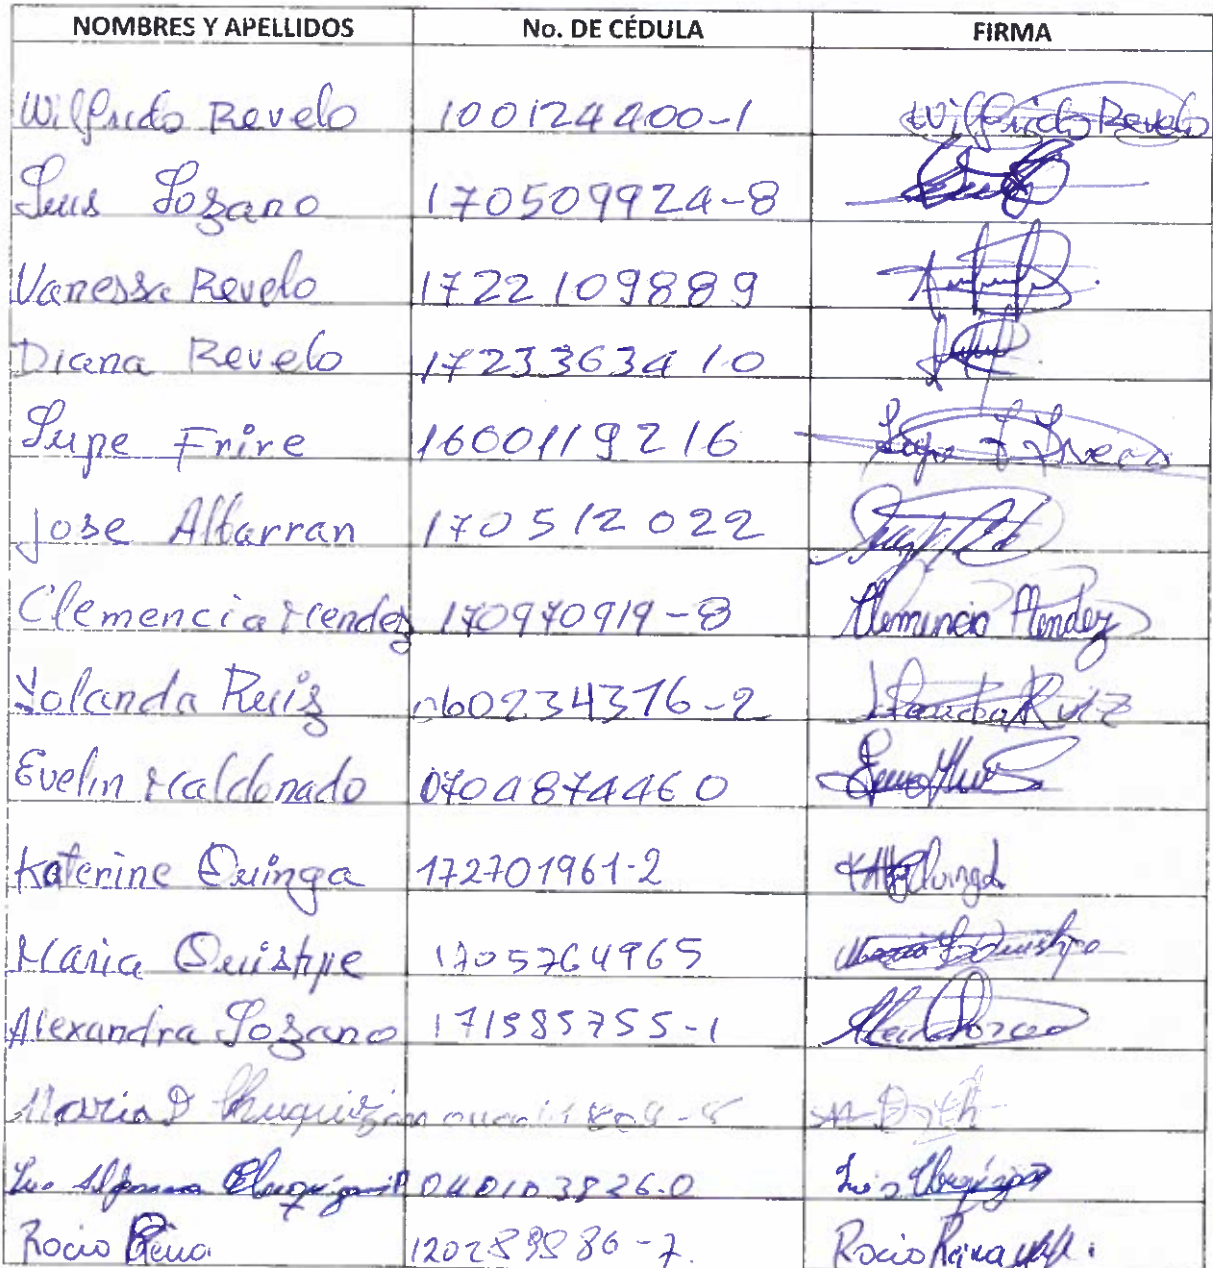 NOMBRES Y APELLIDOS No. DE CÉDULA FIRMA
Wilfrido Revelo 100124400-1 Wilfrido Revelo
Luis Lozano 170509924-8
Vanessa Revelo 1722109889
Diana Revelo 1723363410
Lupe Freire 1600119216
Jose Albarran 170512022
Clemencia Mendez 170970919-8 Clemencia Mendez
Yolanda Ruiz 060234376-2 Yolanda Ruiz
Evelin Maldonado 0704874460
Katerine Quinga 172701961-2 Kat Quinga
Maria Quishpe 1705764965 Maria Quishpe
Alexandra Lozano 171585755-1
Maria D
Luis Alfonso 040103826-0 Luis
Rocio Reina 120289886-7. Rocio Reina